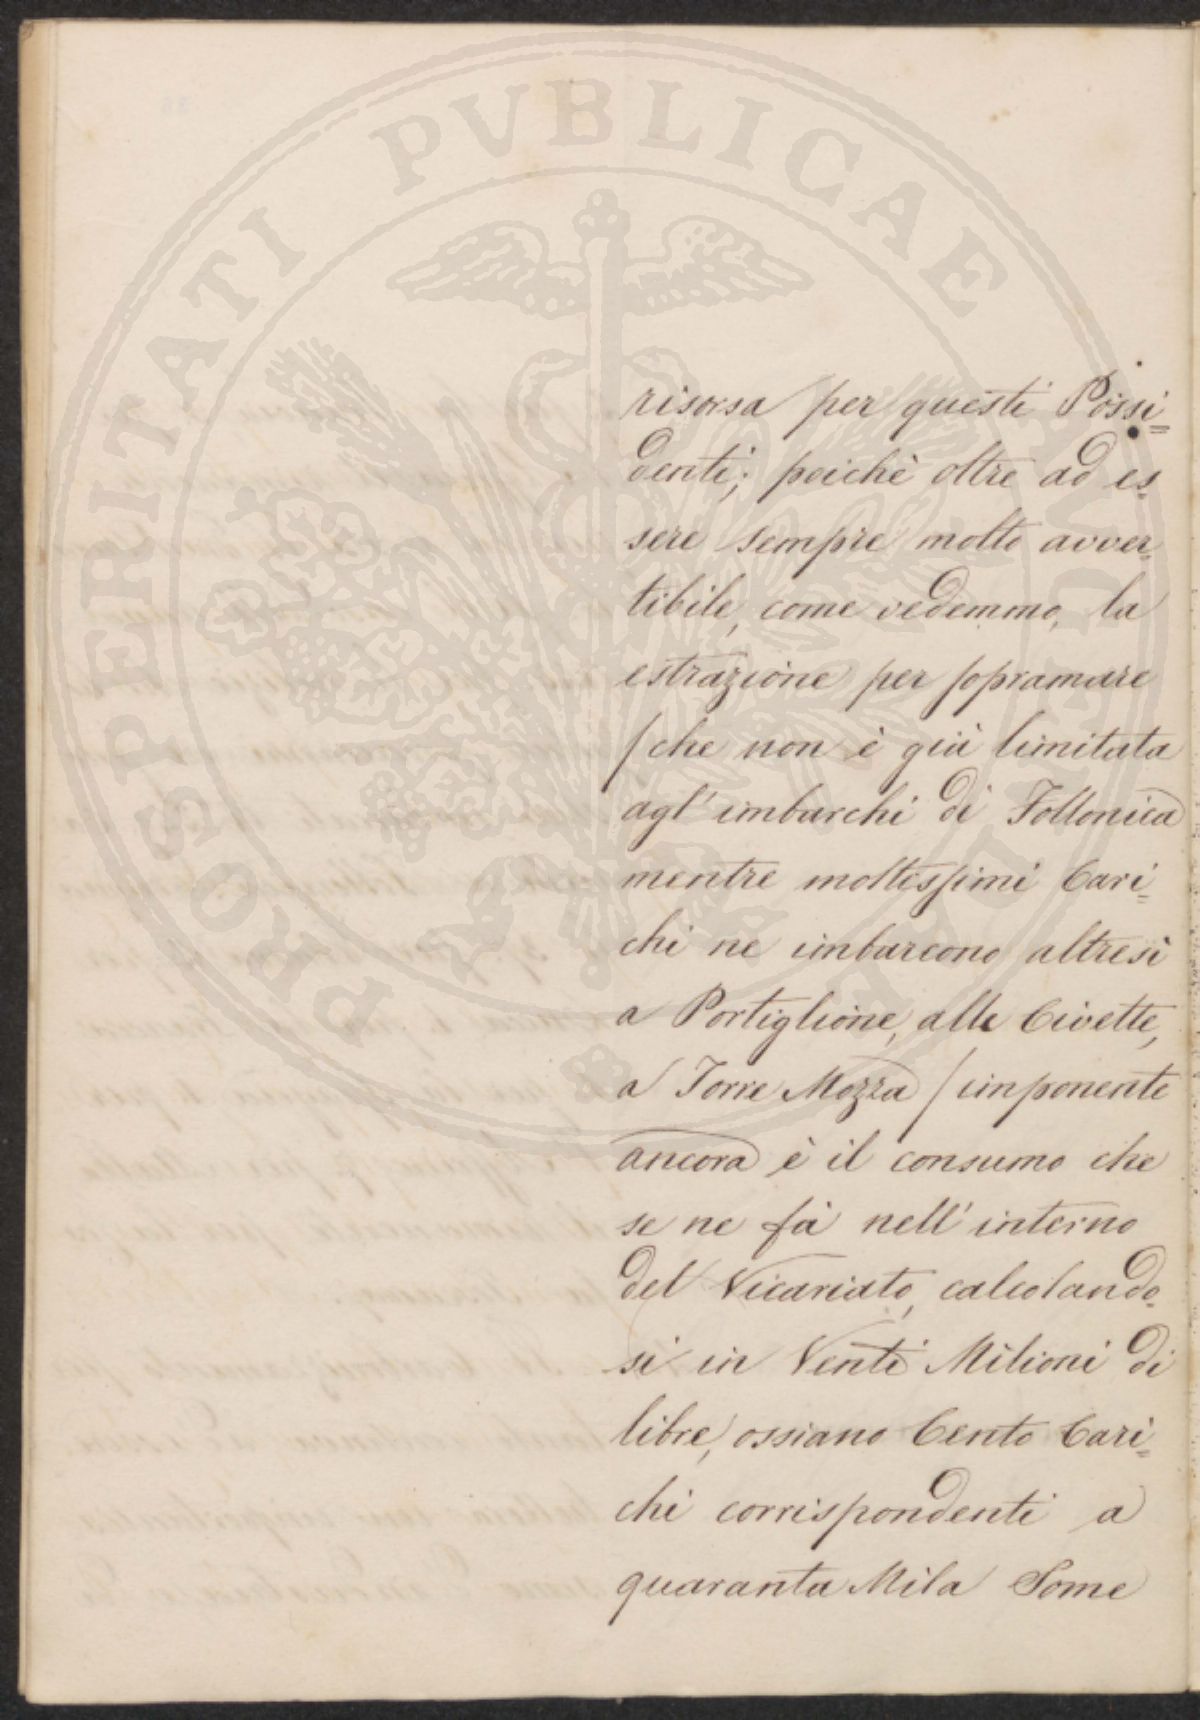 PROSPERITATI PVBLICAE
risorsa per questi Possi=
denti; poichè oltre ad es=
sere sempre molto avver=
tibile, come vedemmo, la
estrazione per sopramare
/che non è già limitata
agl'imbarchi di Follonica
mentre moltissimi Cari=
chi ne imbarcono altresì
a Portiglione, alle Civette,
a Torre Mozza/ imponente
ancora è il consumo che
se ne fà nell'interno
del Vicariato, calcolando=
si in Venti Milioni di
libre, ossiano Cento Cari=
chi corrispondenti a
quaranta Mila Some